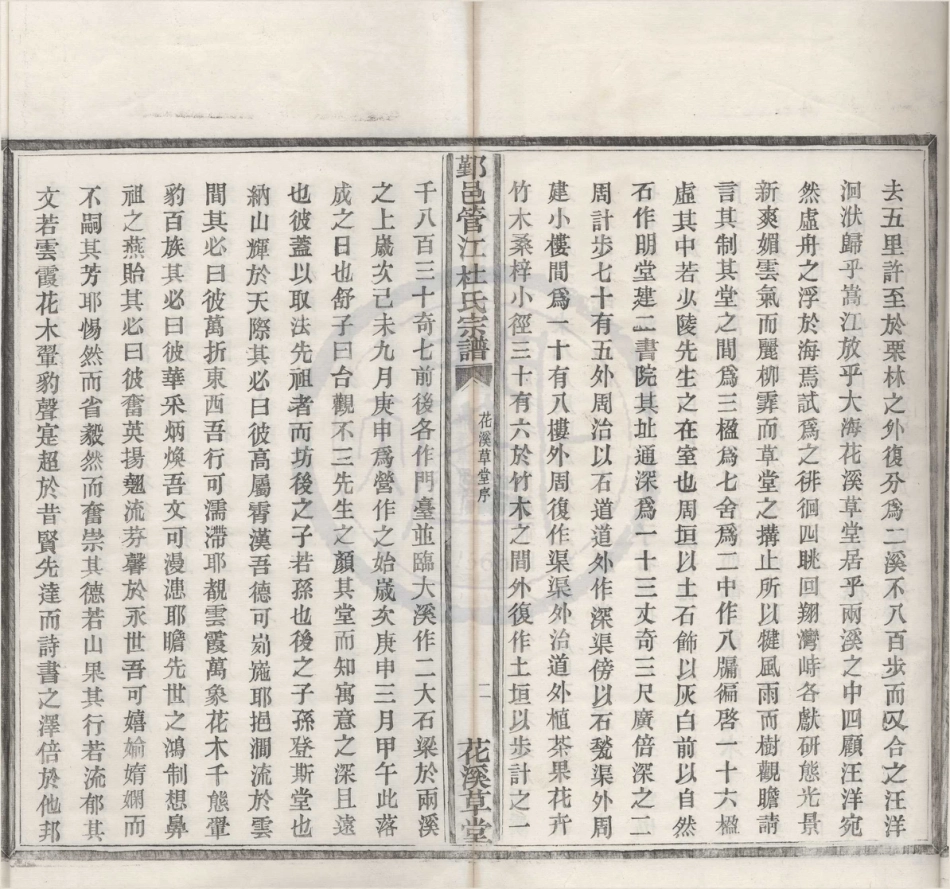 去五里許至於栗林之外復分爲二溪不八百步而又合之汪洋
洄洑歸乎嵩江放乎大海花溪草堂居乎兩溪之中四顧汪洋宛
然虛舟之浮於海焉試爲之徘徊四眺回翔灣峙各獻研態光景
新爽媚雲氣而麗柳霏而草堂之搆止所以健風雨而樹觀瞻請
言其制其堂之間爲三楹爲七舍爲二中作八牖徧啓一十六楹
虛其中若少陵先生之在室也周垣以土石飾以灰白前以自然
石作明堂建二書院其址通深爲一十三丈奇三尺廣倍深之二
周計步七十有五外周治以石道道外作深渠傍以石甃渠外周
建小樓間爲一十有八樓外周復作渠渠外治道外植茶果花卉
竹木桑梓小徑三十有六於竹木之間外復作土垣以步計之一
鄞邑管江杜氏宗譜
花溪草堂序
二
花溪草堂
千八百三十奇七前後各作門臺並臨大溪作二大石梁於兩溪
之上歲次己未九月庚申爲營作之始歲次庚申三月甲午此落
成之日也舒子曰台觀不三先生之顏其堂而知寓意之深且遠
也彼蓋以取法先祖者而坊後之子若孫也後之子孫登斯堂也
納山輝於天際其必曰彼高屬霄漢吾德可刓施耶挹澗流於雲
間其必曰彼萬折東西吾行可濡滯耶覩雲霞萬象花木千態翬
豹百族其必曰彼華采炳煥吾文可漫漶耶瞻先世之鴻制想鼻
祖之燕貽其必曰彼奮英揚翹流芬馨於永世吾可嬉婾媠嫻而
不嗣其芳耶惕然而省毅然而奮崇其德若山果其行若流郁其
文若雲霞花木翬豹聲寔超於昔賢先達而詩書之澤倍於他邦